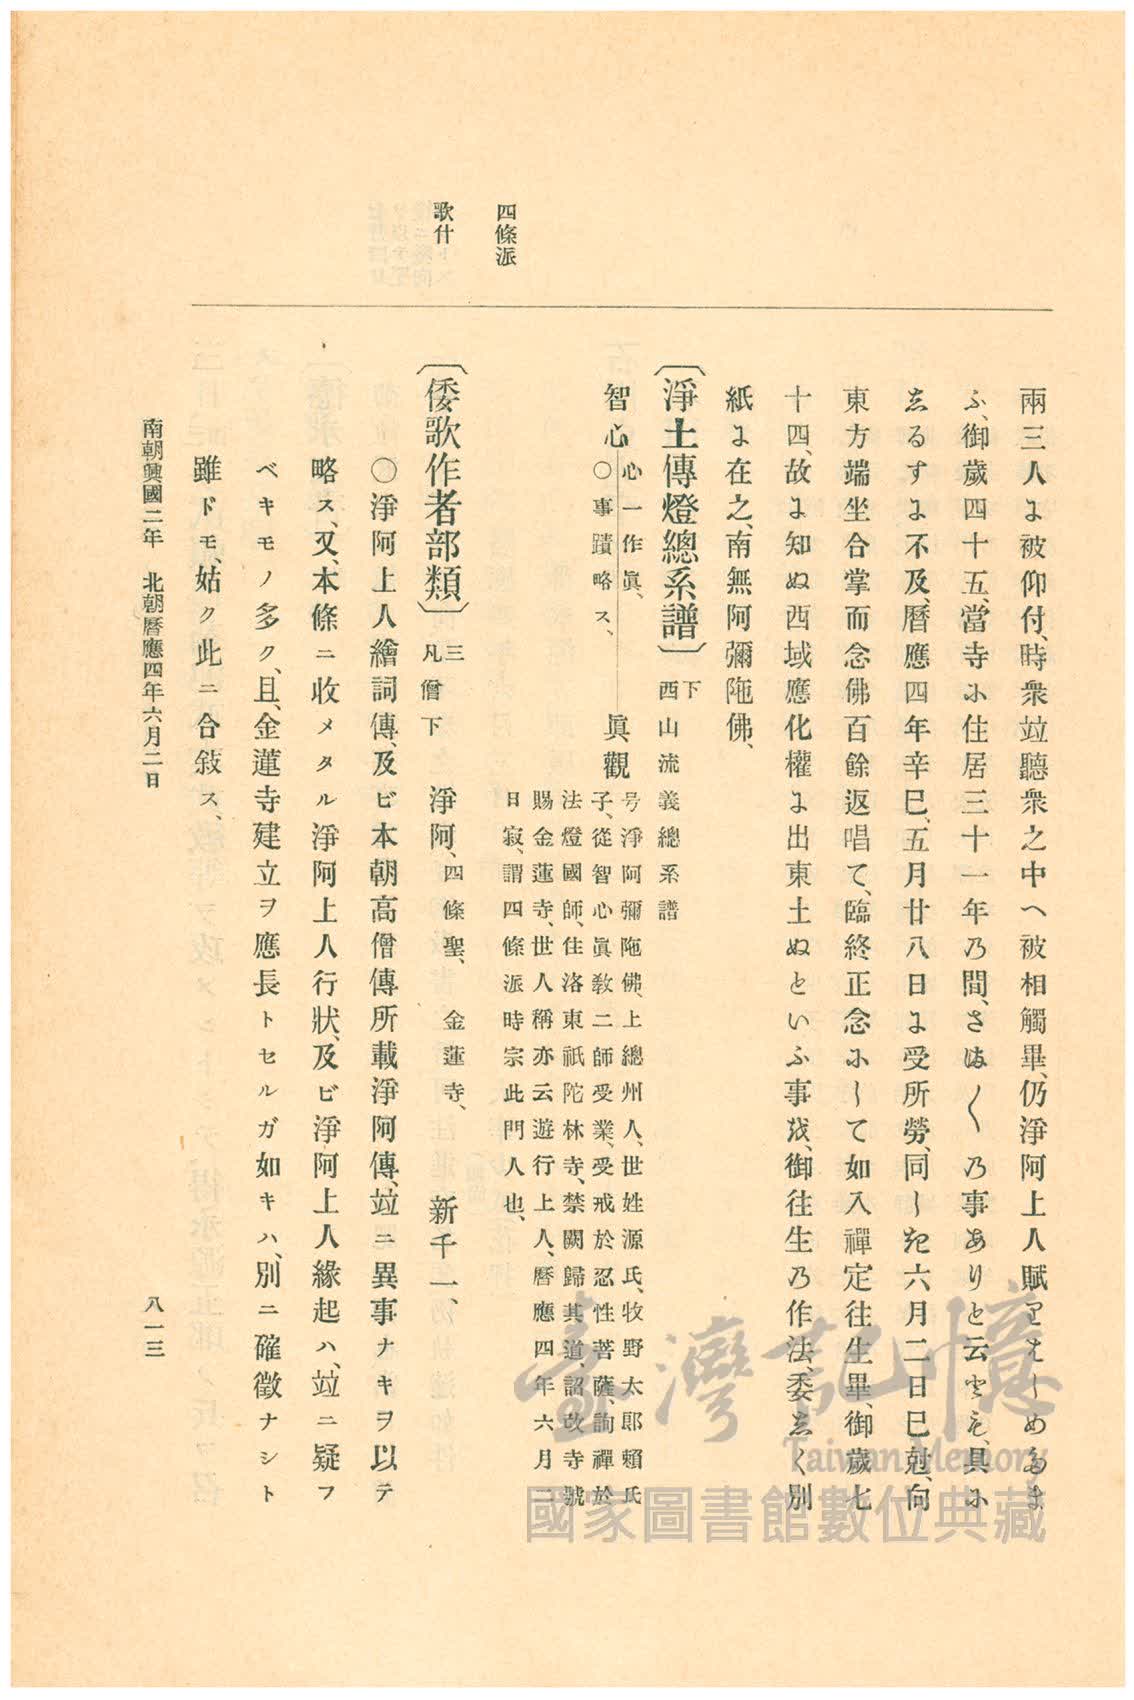 四條派
歌什
兩三人よ被仰付、時衆竝聽衆之中ヘ被相觸畢、仍淨阿上人賦
ふ、御歲四十五、當寺に住居三十一年乃間、さま〱乃事ありと云とも、具に
志るすよ不及、曆應四年辛巳、五月廿八日よ受所勞、同しき六月二日巳尅、向
東方端坐合掌而念佛百餘返唱て、臨終正念にして如入禪定往生畢、御歲七
十四、故よ知ぬ西域應化權よ出東土ぬといふ事を、御往生乃作法、委志く別
紙よ在之、南無阿彌陁佛、
〔淨土傳燈總系譜〕下 西山流義總系譜
智心 心一作眞、○事蹟略ス、
眞觀 号淨阿彌陁佛、上總州人、世姓源氏、牧野太郞賴氏
子、從智心眞敎二師受業、受戒於忍性菩薩、詢禪於
法燈國師、住洛東祇陀林寺、禁闕歸其道、詔改寺號
賜金蓮寺、世人稱亦云遊行上人、曆應四年六月二
日寂、謂四條派時宗此門人也、
〔倭歌作者部類〕三 凡僧下 淨阿、四條聖、金蓮寺、 新千一、
○淨阿上人繪詞傳、及ビ本朝高僧傳所載淨阿傳、竝ニ異事ナキヲ以テ
略ス、又、本條ニ收メタル淨阿上人行狀、及ビ淨阿上人緣起ハ、竝ニ疑フ
ベキモノ多ク、且、金蓮寺建立ヲ應長トセルガ如キハ、別ニ確徵ナシト
雖ドモ、姑ク此ニ合敍ス、
南朝興國二年 北朝曆應四年六月二日
八一三
臺灣記憶
Taiwan Memory
國家圖書館數位典藏